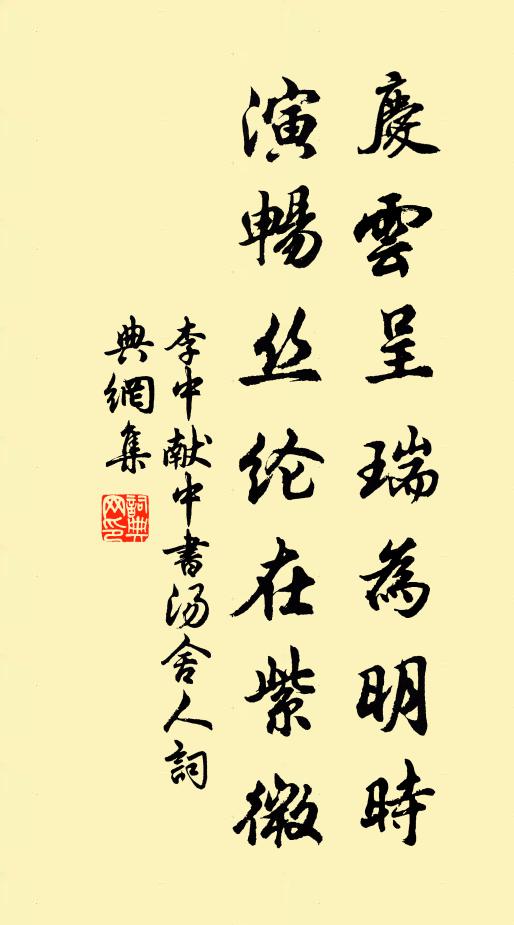 慶雲呈瑞為明時
演暢丝纶在紫微
李中献中書汤舍人詞
典網集
詞典
网印